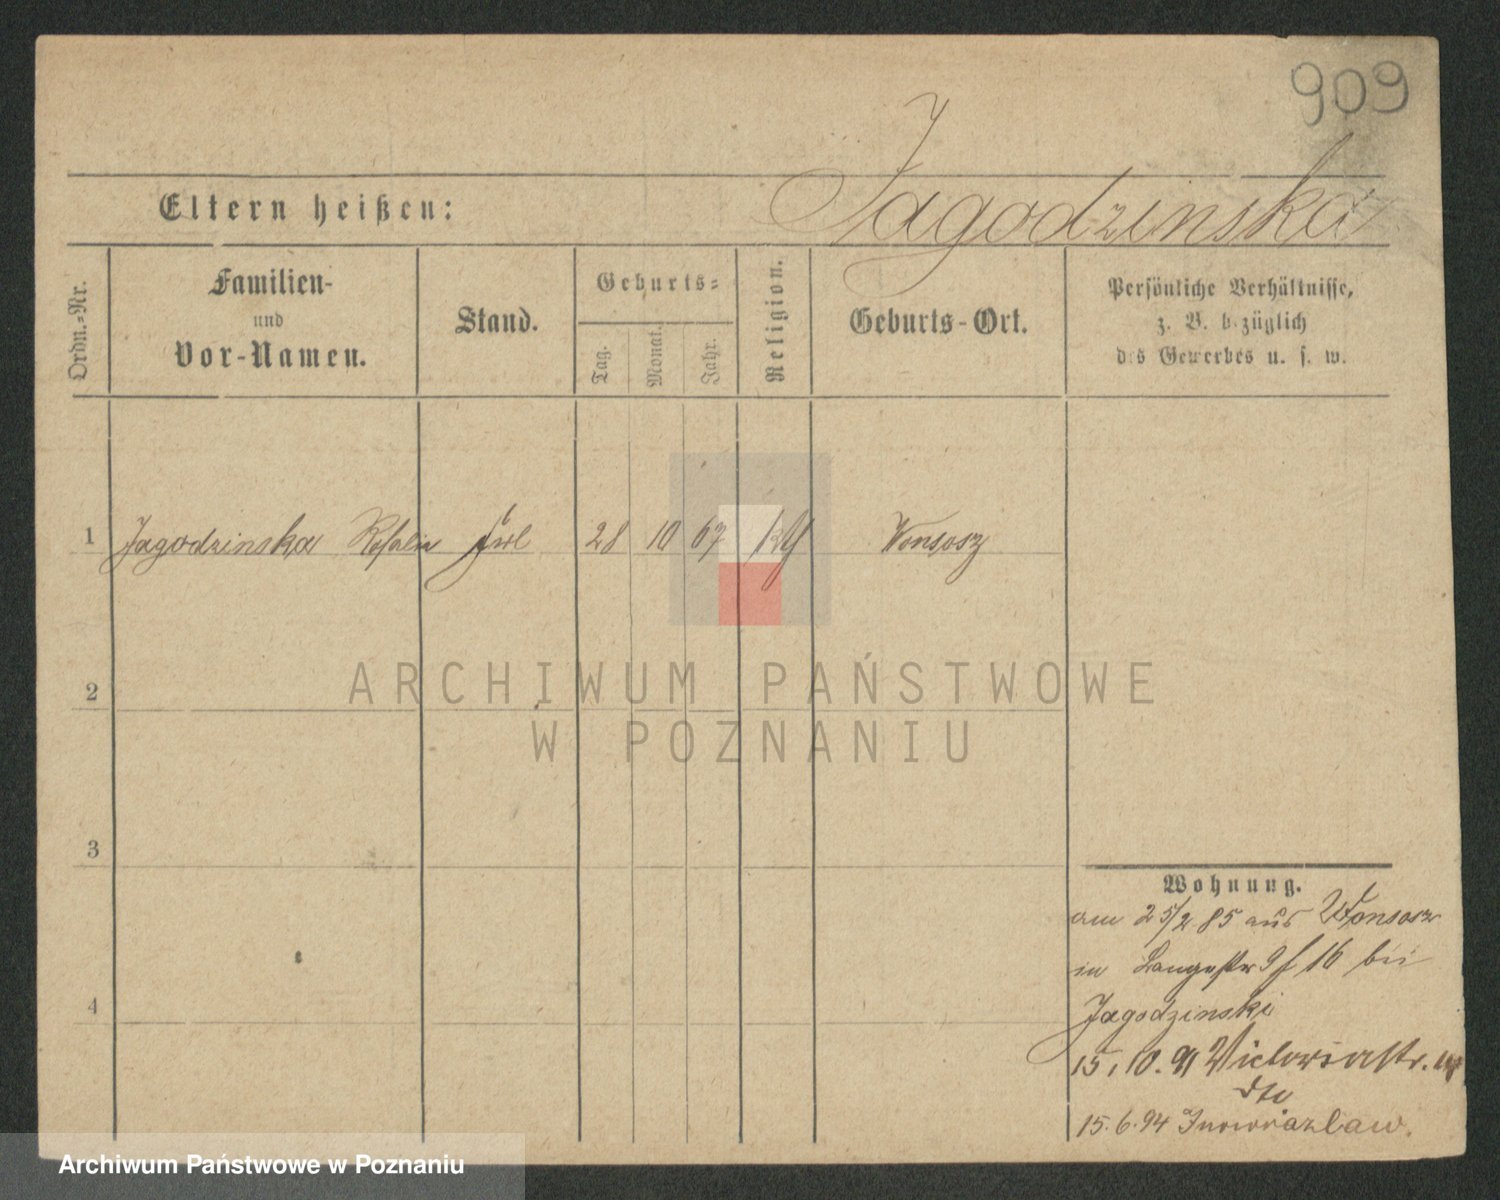 909
Jagodzinska
Eltern heißen:
Ordn.=Nr.
Familien-
und
Vor-Namen.
Stand.
Geburts=
Tag.
Monat.
Jahr.
Religion.
Geburts-Ort.
Persönliche Verhältnisse,
z. B. bezüglich
des Gewerbes u. s. w.
1 Jagodzinska Rosalie 28 10 67 Wonsosz
2
ARCHIWUM PAŃSTWOWE
W POZNANIU
3
4
Wohnung.
am 25/2 85 aus Wonsosz
in Langestr 9 / 16 bei
Jagodzinski
15.10.91 Victoriastr.
15.6.94 Inowrazlaw.
Archiwum Państwowe w Poznaniu